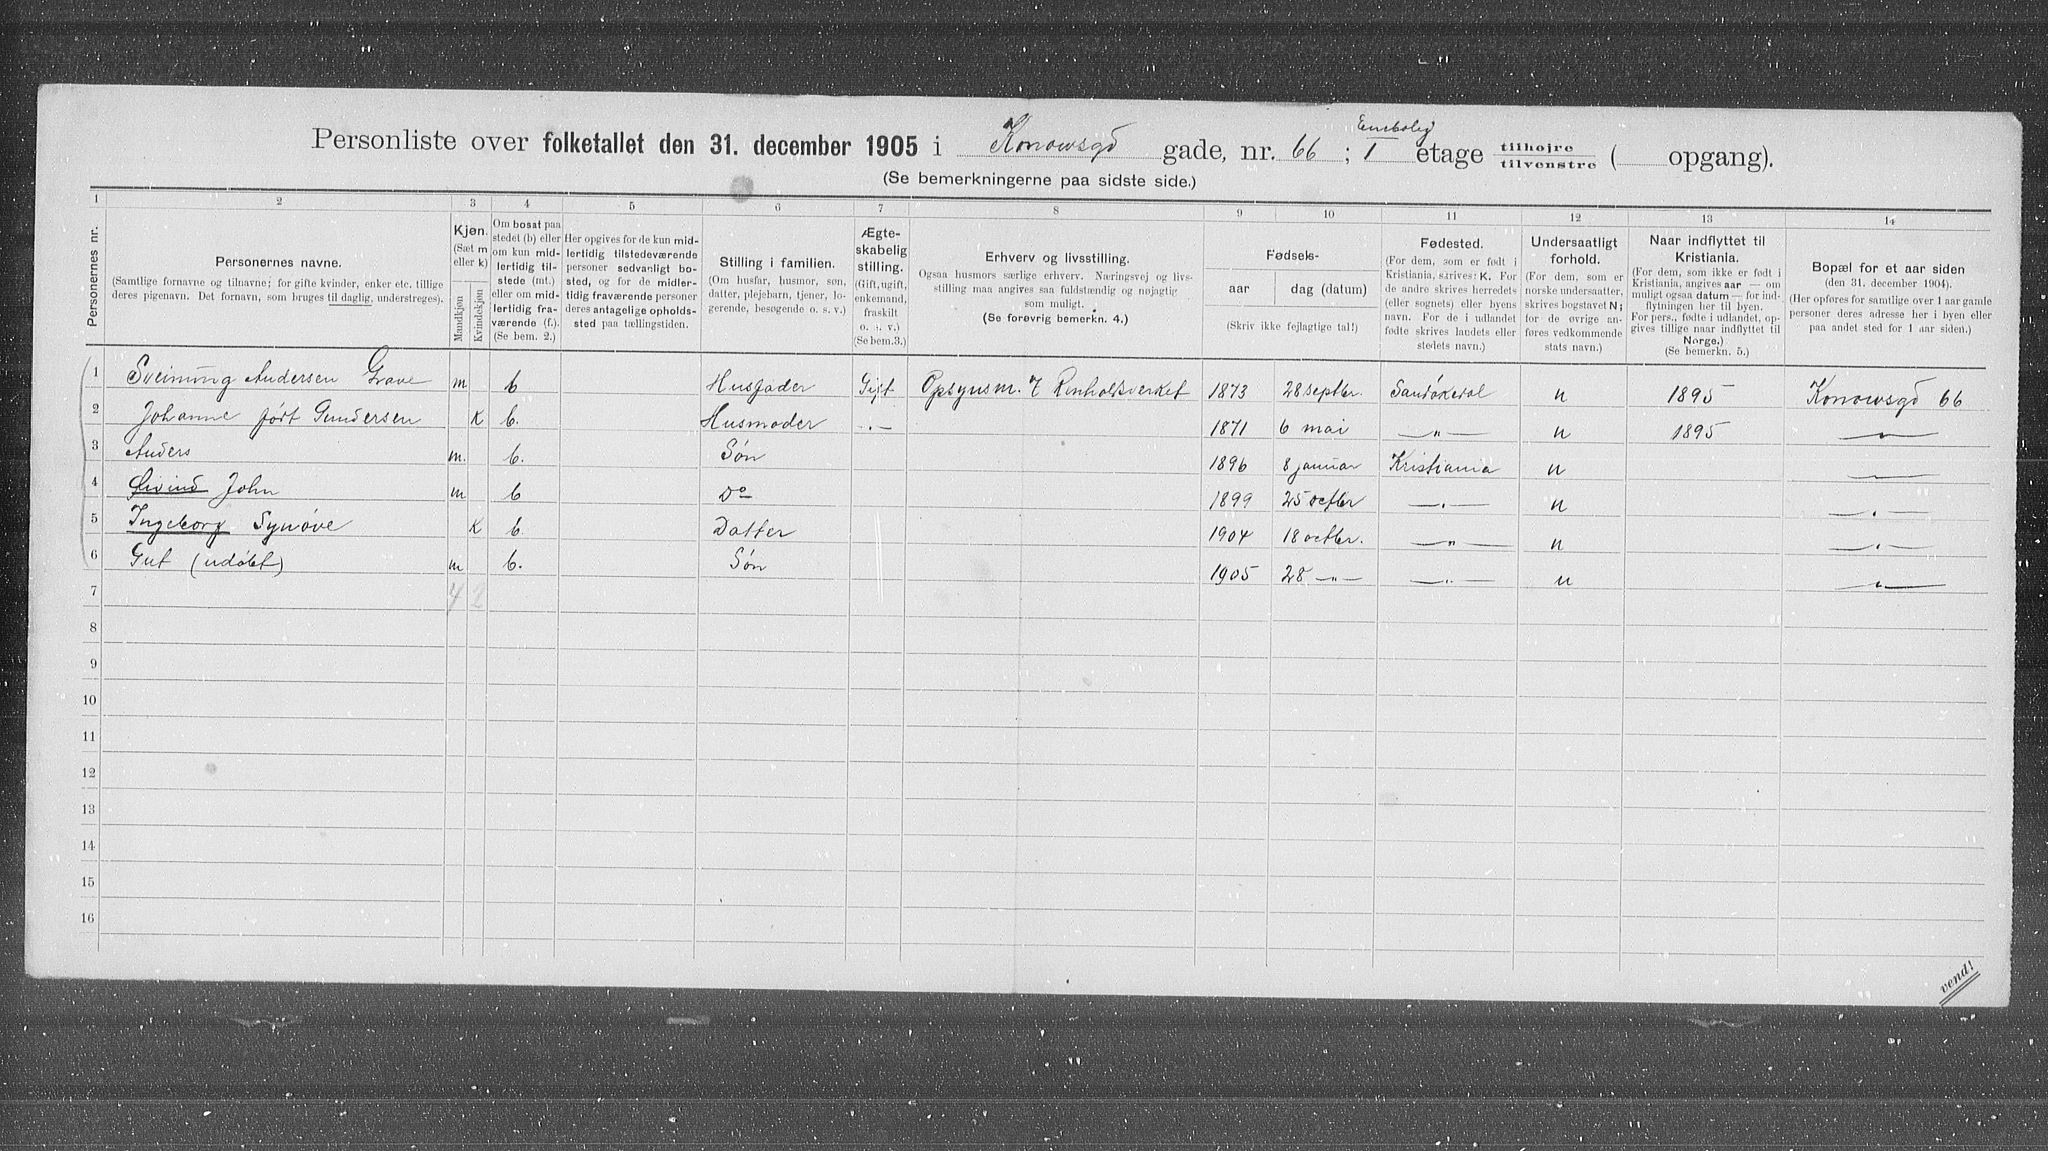 Personliste over folketallet den 31. december 1905 i Konowsgd gade, nr. 66 ; I Enebolig etage tilhøjre tilvenstre ( opgang).
(Se bemerkningerne paa sidste side.)
1 2 3 4 5 6 7 8 9 10 11 12 13 14
Personernes nr.
Personernes navne.
(Samtlige fornavne og tilnavne; for gifte kvinder, enker etc. tillige
deres pigenavn. Det fornavn, som bruges til daglig, understreges).
Kjøn.
(Sæt m
eller k)
Mandkjøn
Kvindekjøn
Om bosat paa
stedet (b) eller
om kun mid-
lertidig til-
stede (mt.)
eller om mid-
lertidig fra-
værende (f.).
(Se bem. 2.)
Her opgives for de kun mid-
lertidig tilstedeværende
personer sedvanligt bo-
sted, og for de midler-
tidig fraværende personer
deres antagelige opholds-
sted paa tællingstiden.
Stilling i familien.
(Om husfar, husmor, søn,
datter, plejebarn, tjener, lo-
gerende, besøgende o. s. v.)
Ægte-
skabelig
stilling.
(Gift, ugift,
enkemand,
fraskilt
o. s. v.)
(Se bem.3.)
Erhverv og livsstilling.
Ogsaa husmors særlige erhverv. Næringsvej og livs-
stilling maa angives saa fuldstændig og nøjagtig
som muligt.
(Se forøvrig bemerkn. 4.)
Fødsels-
aar
dag (datum)
(Skriv ikke fejlagtige tal!)
Fødested.
(For dem, som er født i
Kristiania, skrives: K. For
de andre skrives herredets
(eller sognets) eller byens
navn. For de i udlandet
fødte skrives landets eller
stedets navn.)
Undersaatligt
forhold.
(For dem, som er
norske undersaatter,
skrives bogstavet N;
for de øvrige an-
føres vedkommende
stats navn.)
Naar indflyttet til
Kristiania.
(For dem, som ikke er født i
Kristiania, angives aar — om
muligt ogsaa datum — for ind-
flytningen her til byen.
For pers., fødte i udlandet, op-
gives tillige naar indflyttet til
Norge.)
(Se bemerkn. 5.)
Bopæl for et aar siden
(den 31. december 1904).
(Her opføres for samtlige over 1 aar gamle
personer deres adresse her i byen eller
paa andet sted for 1 aar siden.)
1 Sveinung Andersen Grave m b Husfader Gift Opsynsm. v Renholdsverket 1873 28 septbr. Sandøkedal n 1895 Konowsgd 66
2 Johanne født Gundersen K b. Husmoder -"- 1871 6 mai -"- n 1895 -"-
3 Anders m. b. Søn 1896 8 januar Kristiania n -"-
4 Øivind John m b Do 1899 25 octbr -"- n -"-
5 Ingeborg Synøve K b. Datter 1904 18 octbr. -"- n -"-
6 Gut (udøbt) m b. Søn 1905 28 -"- -"- n -"-
7 4 2
8
9
10
11
12
13
14
15
16
vend!